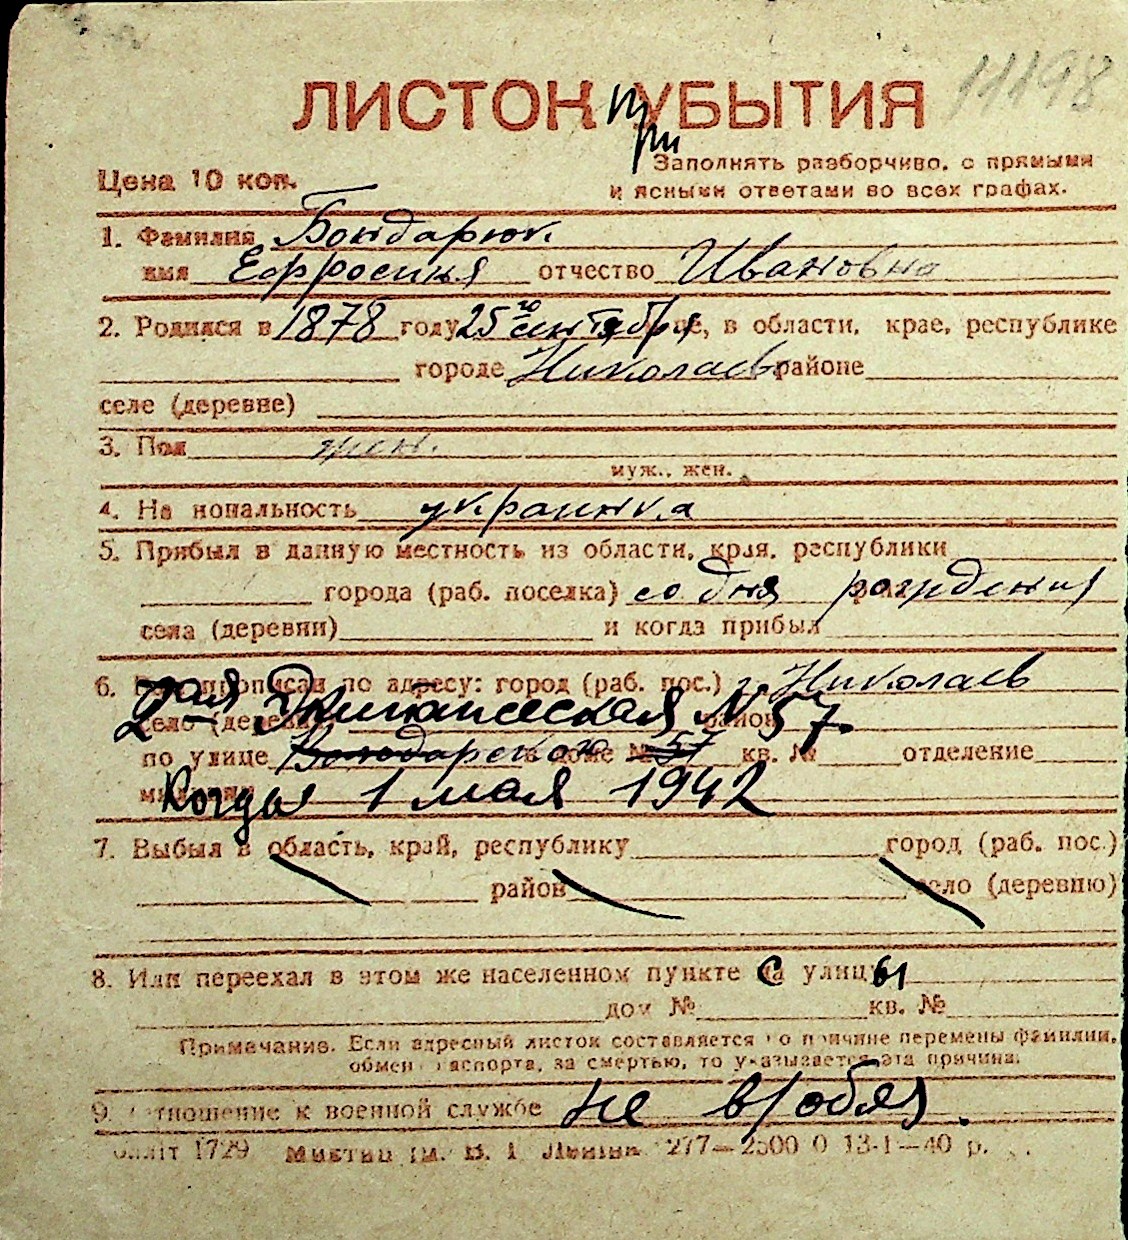 11198
ЛИСТОК УБЫТИЯ
при
Цена 10 коп.
Заполнять разборчиво, с прямыми
и ясными ответами во всех графах.
1. Фамилия Бондарюк
имя Ефросиния отчество Ивановна
2. Родился в 1878 году 25го сентября, в области, крае, республике
городе Николаев районе
селе (деревне)
3. Пол жен.
муж., жен.
4. На иональность украинка
5. Прибыл в данную местность из области, края, республики
города (раб. поселка) со дня рождения
села (деревни) и когда прибыл
6. прописан по адресу: город (раб. пос.) г. Николаев
2-ая Экипажеская N 57.
село (деревня) район
по улице Володарского в доме № 57 кв. № отделение
Когда 1 мая 1942
7. Выбыл в область, край, республику город (раб. пос.)
район село (деревню)
8. Или переехал в этом же населенном пункте с улицы
дом № кв. №
Примечание. Если адресный листок составляется по причине перемены фамилии,
обмен паспорта, за смертью, то указывается эта причина.
9. Отношение к военной службе не в/обяз.
1729 277—2500 0 13-1—40 р.